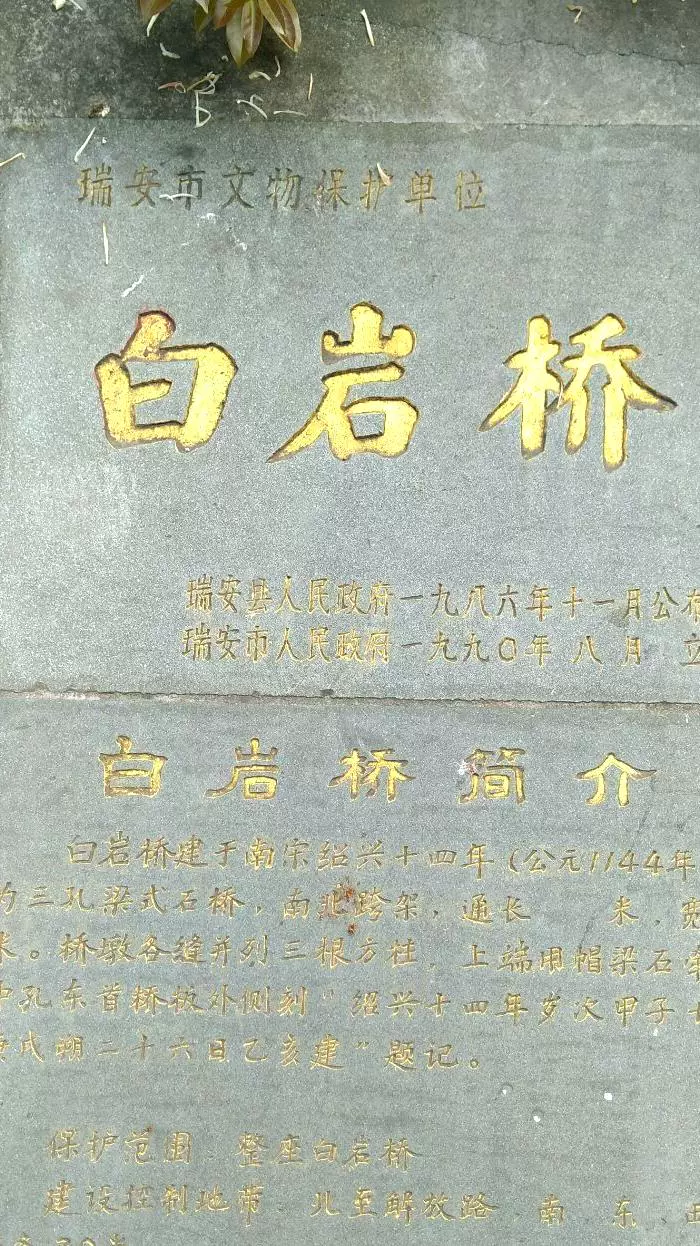 瑞安市文物保护单位
白岩桥
瑞安县人民政府一九八六年十一月公布
瑞安市人民政府一九九〇年 八 月 立
白岩桥简介
白岩桥建于南宗绍兴十四年(公元1144年
为三孔梁式石桥，南北跨架，通长 米，宽
米。桥墩各缝并列三根方柱，上端用帽梁石
中孔东首桥板外侧刻“绍兴十四年岁次甲子
庚戌朔二十六日乙亥建”题记。
保护范围：整座白岩桥
建设控制地带：北至解放路，南、东、